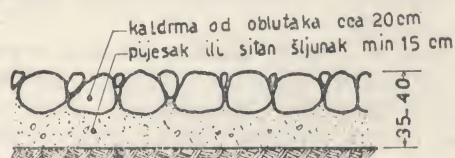 kaldrma od oblutaka cca 20cm
pijesak ili sitan šljunak min 15 cm
35-40